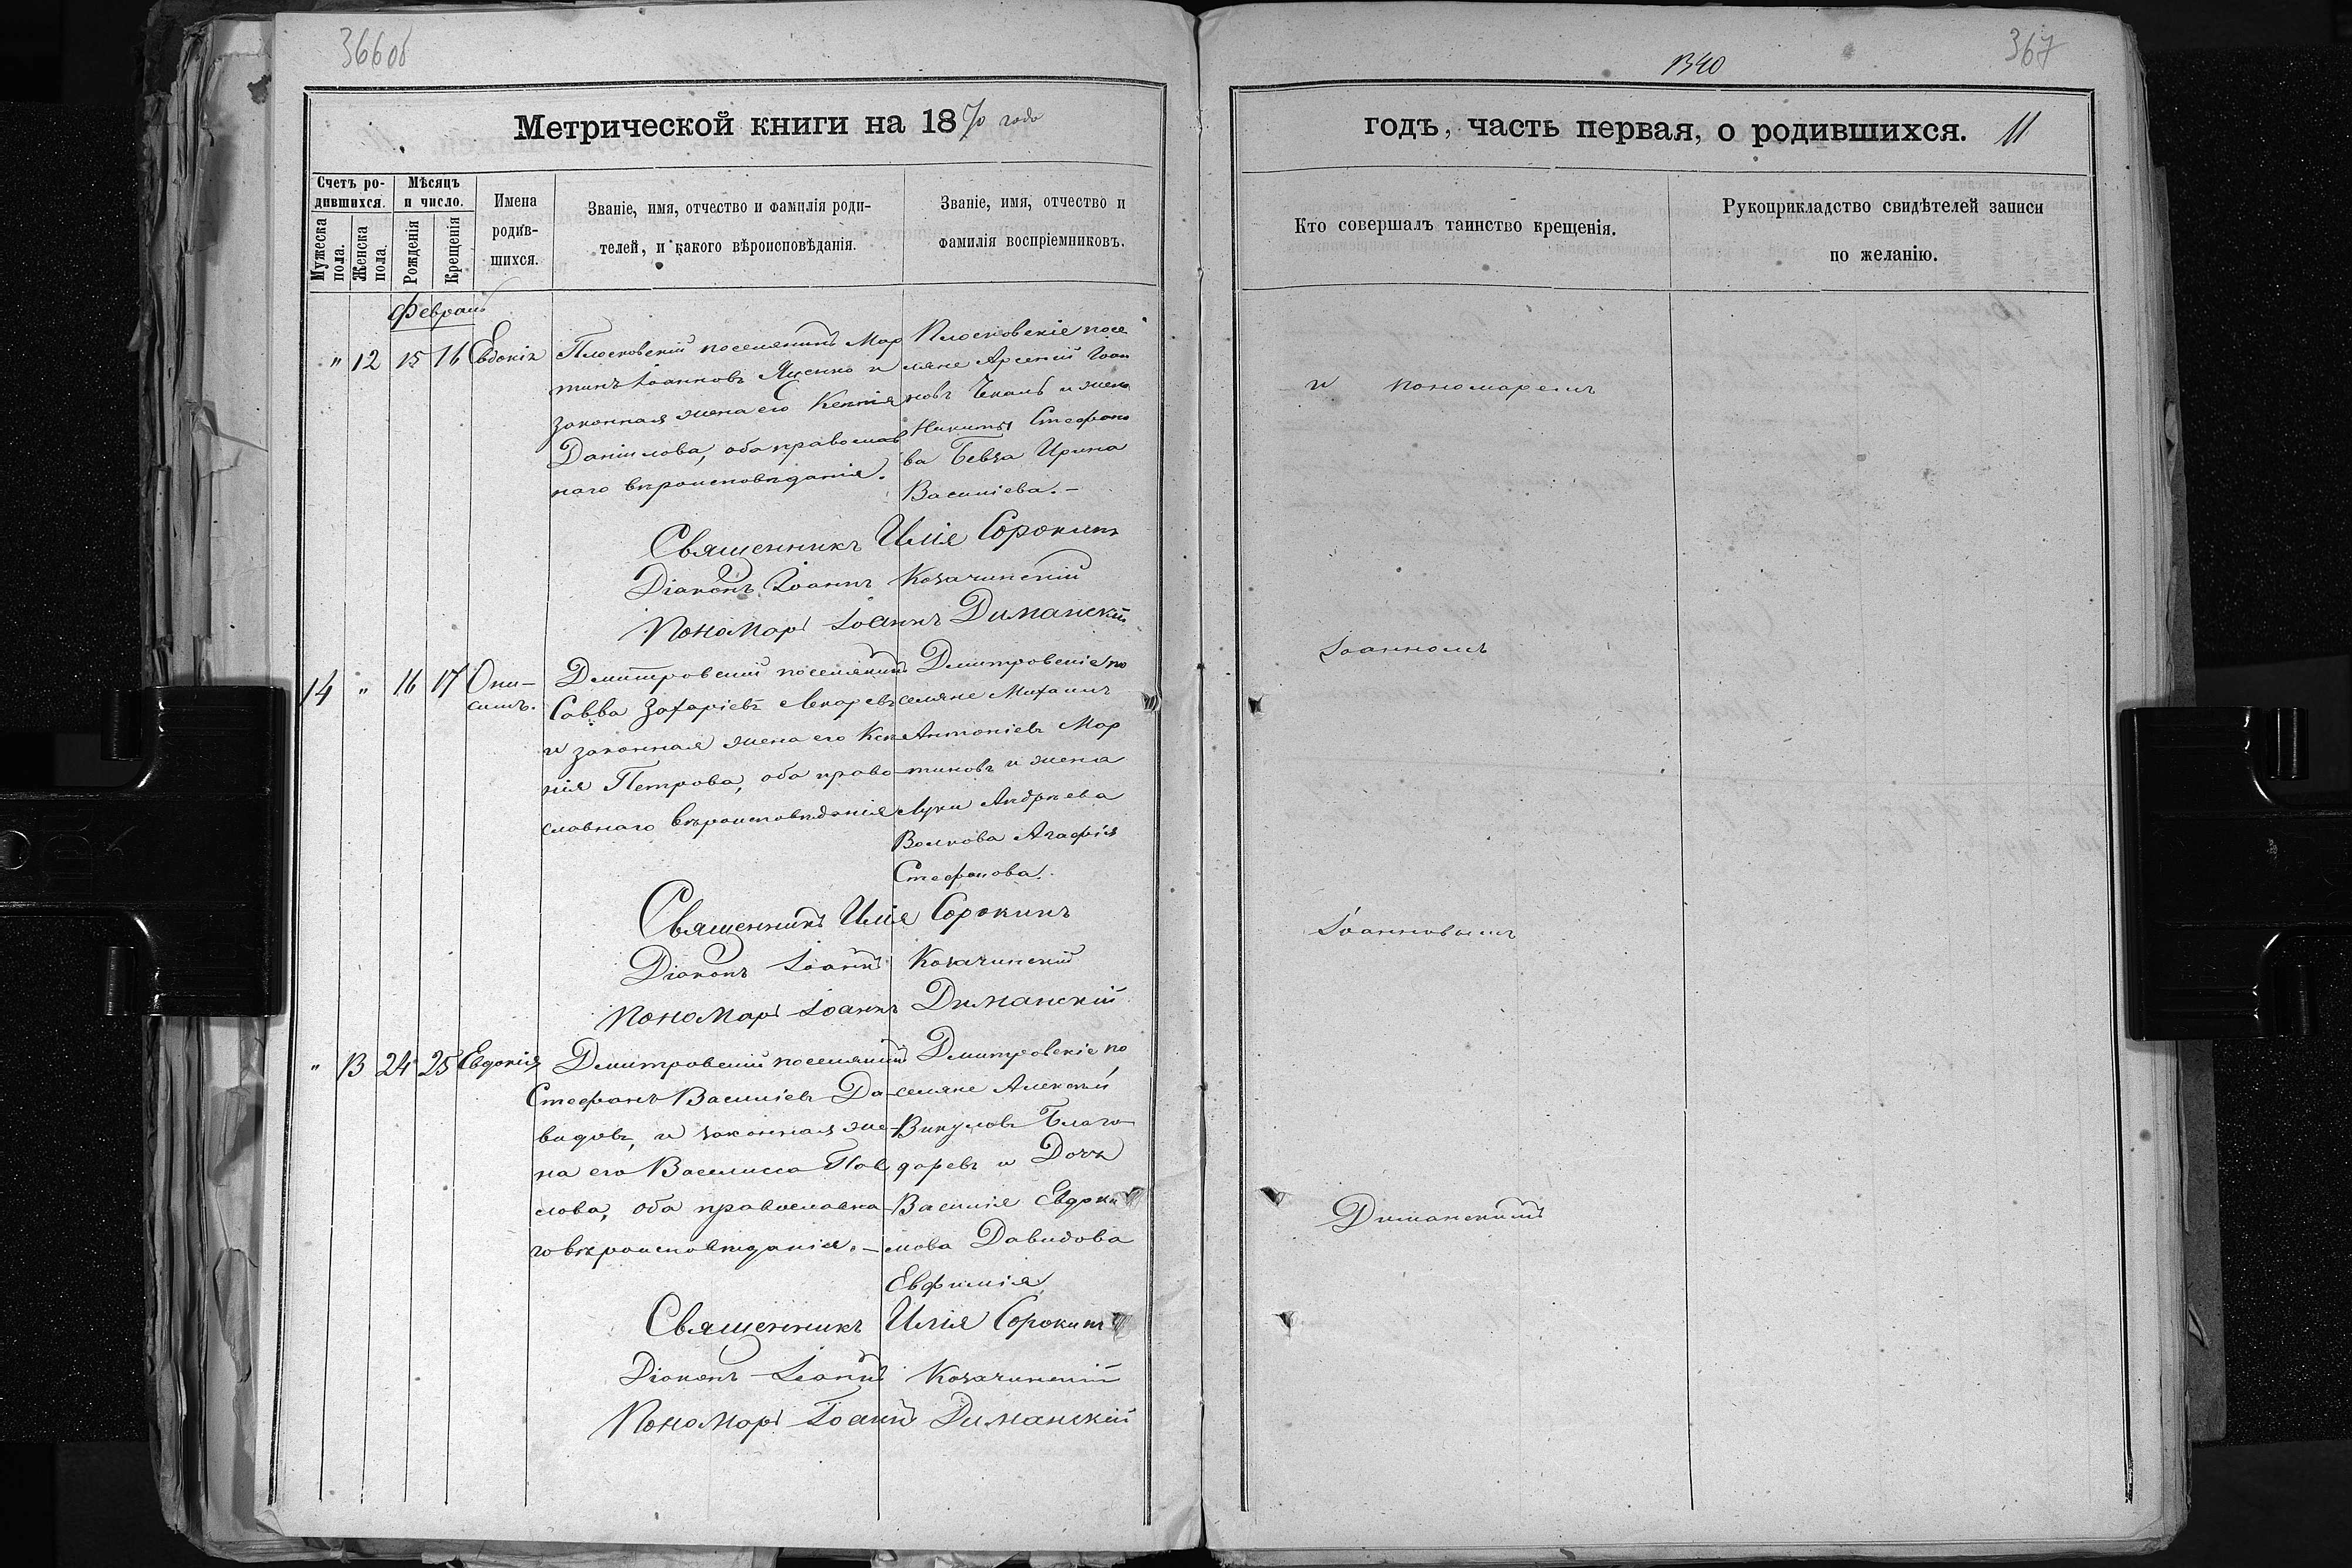 366об
Метрической книги на 1870 года
Счетъ ро-
дившихся.
Мужеска пола.
Женска пола.
Мѣсяцъ
и число.
Рожденія
Крещенія
Имена
родив-
шихся.
Званіе, имя, отчество и фамилія роди-
телей, и какого вѣроисповѣданія.
Званіе, имя, отчество и
фамилія воспріемниковъ.
Февраль
" 12 15 16 Евдокія
Плосковскій поселянинъ Мар
тинъ Іоанновъ Яценко и
законная жена его Ксенія
Даніилова, оба православ
наго вѣроисповѣданія.
Плосковскіе посе
ляне Арсеній Іоан
новъ Чкалъ и жена
Никиты Стефано
ва Бевза Ирина
Василіева.-
Священникъ Илія Сорокинъ
Діаконъ Іоаннъ Козачинскій
Пономарь Іоаннъ Диманскій
14 " 16 17 Они-
симъ.
Дмитровскій поселянинъ
Савва Захаріевъ
и законная жена его Ксе
нія Петрова, оба право
славнаго вѣроисповѣданія
Дмитровскіе по
селяне Михаилъ
Антоніевъ Мар
тиновъ и жена
Луки Андрѣева
Волкова Агафія
Стефанова.
Священникъ Илія Сорокинъ
Діаконъ Іоаннъ Козачинскій
Пономарь Іоаннъ Диманскій
" 13 24 25 Евдокія
Дмитровскій поселянинъ
Стефанъ Василіевъ Да-
видовъ, и законная же-
на его Василиса Пав
лова, оба православна
го вѣроисповѣданія.-
Дмитровскіе по
селяне Алексѣй
Викуловъ Благо-
даревъ и Дочь
Василія Евдоки
мова Давидова
Евфимія
Священникъ Илія Сорокинъ
Діаконъ Іоаннъ Козачинскій
Пономарь Іоаннъ Диманскій
1340
367
годъ, часть первая, о родившихся. 11
Кто совершалъ таинство крещенія.
Рукоприкладство свидѣтелей записи
по желанію.
и пономаремъ
Іоанномъ
Іоанновымъ
Диманскимъ